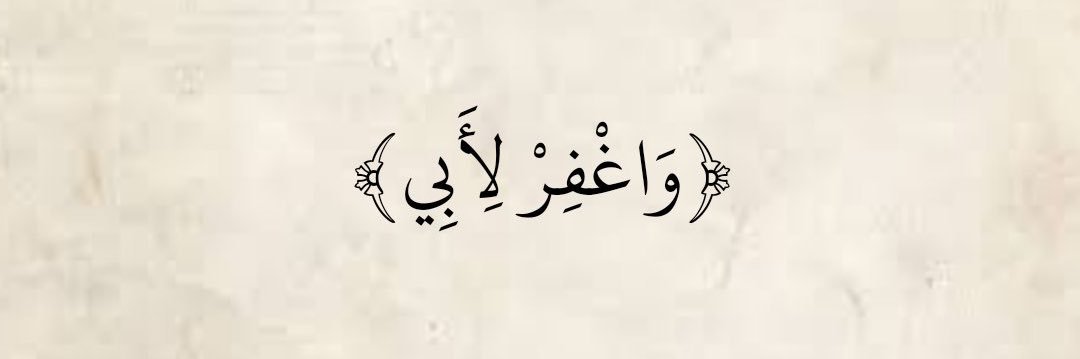 ﴿وَاغْفِرْ لِأَبِي﴾